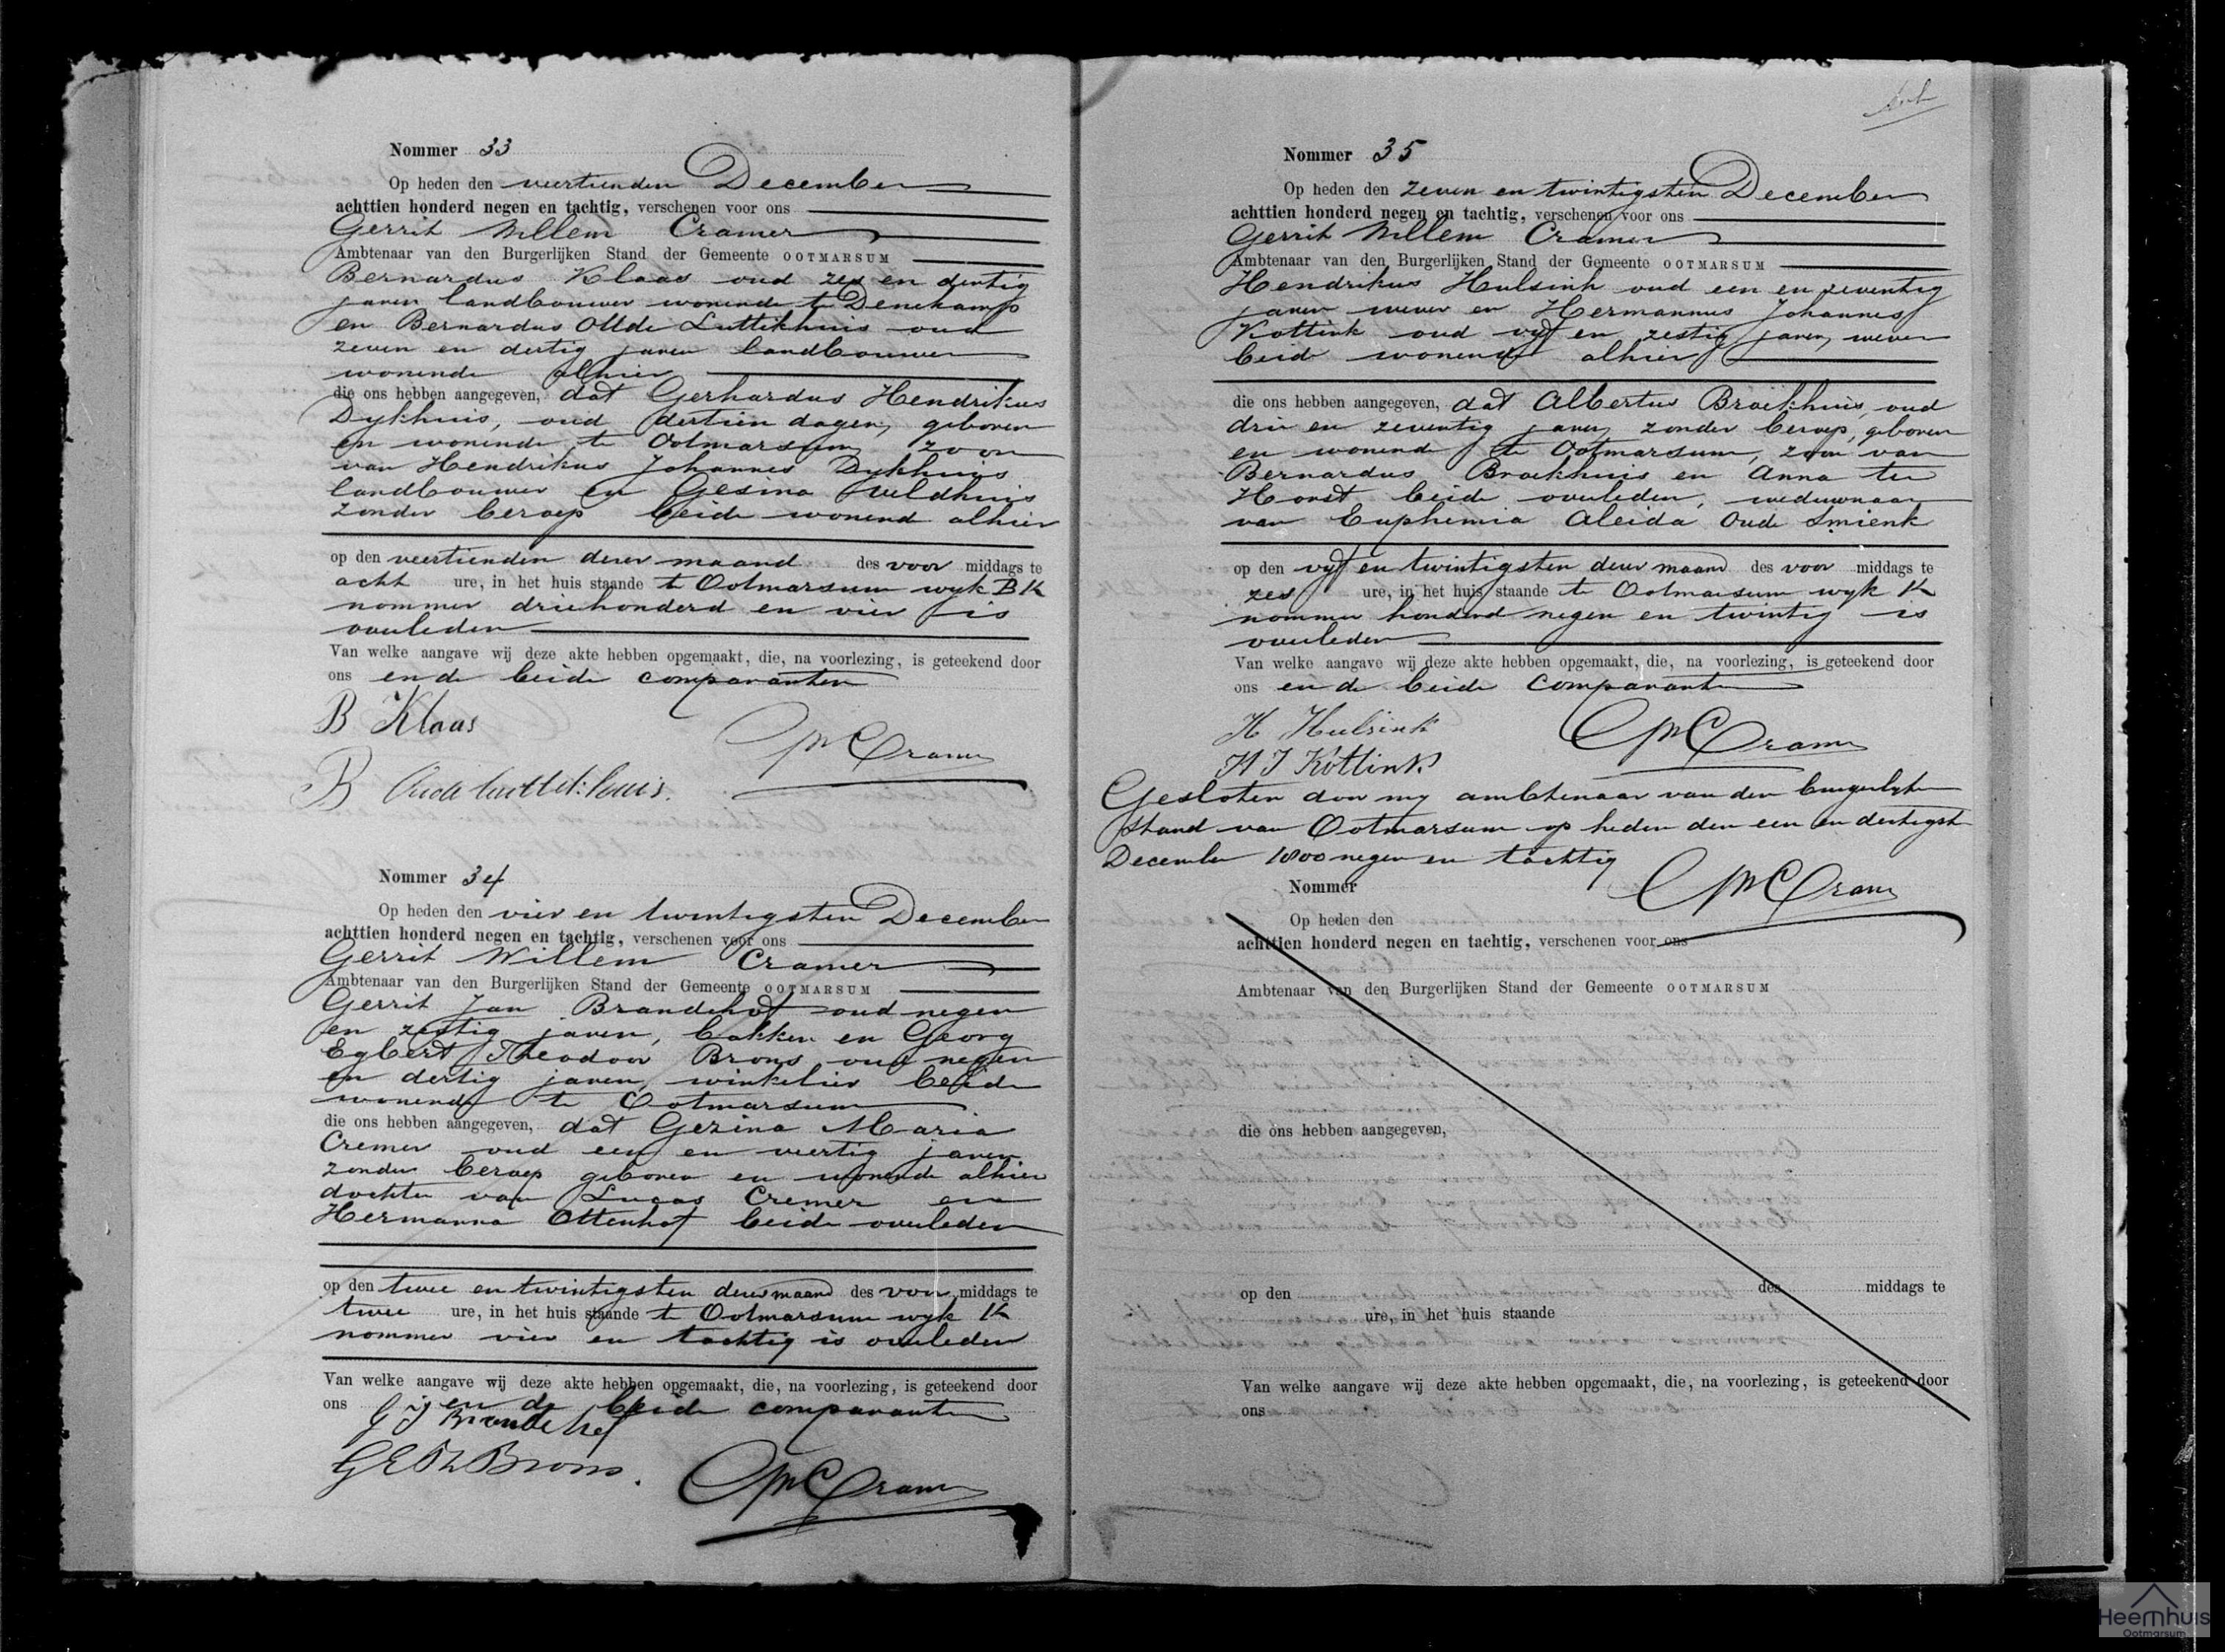 Nommer 33
Op heden den veertienden December
achttien honderd negen en tachtig, verschenen voor ons
Gerrit Willem Cramer
Ambtenaar van den Burgerlijken Stand der Gemeente OOTMARSUM
Bernardus Klaas oud zes en dertig
jaren landbouwer wonende te Denekamp
en Bernardus Olde Luttikhuis oud
zeven en dertig jaren landbouwer
wonende alhier
die ons hebben aangegeven, dat Gerhardus Hendrikus
Dykhuis, oud dertien dagen, geboren
en wonende te Ootmarsum, zoon
van Hendrikus Johannes Dykhuis
landbouwer en Gesina Veldhuis
zonder beroep beide wonend alhier
op den veertienden dezer maand des voor middags te
acht ure, in het huis staande te Ootmarsum wyk B K
nommer driehonderd en vier is
overleden
Van welke aangave wij deze akte hebben opgemaakt, die, na voorlezing, is geteekend door
ons en de beide comparanten
B Klaas
GW Cramer
B Oude Luttikhuis.
Nommer 34
Op heden den vier en twintigsten December
achttien honderd negen en tachtig, verschenen voor ons
Gerrit Willem Cramer
Ambtenaar van den Burgerlijken Stand der Gemeente OOTMARSUM
Gerrit Jan Brandehof oud negen
en zestig jaren, bakker en Georg
Egbert Theodoor Brons oud negen
en dertig jaren, winkelier beide
wonende te Ootmarsum
die ons hebben aangegeven, dat Gezina Maria
Cremer oud een en veertig jaren
zonder beroep geboren en wonende alhier
dochter van Lucas Cremer en
Hermanna Ottenhof beide overleden
op den twee en twintigsten dezer maand des voor middags te
twee ure, in het huis staande te Ootmarsum wyk K
nommer vier en tachtig is overleden
Van welke aangave wij deze akte hebben opgemaakt, die, na voorlezing, is geteekend door
ons en de beide comparanten
G J Brandehof
G E Th Brons.
GW Cramer
Nommer 35
Op heden den zeven en twintigsten December
achttien honderd negen en tachtig, verschenen voor ons
Gerrit Willem Cramer
Ambtenaar van den Burgerlijken Stand der Gemeente OOTMARSUM
Hendrikus Hulsink oud een en zeventig
jaren wever en Hermannus Johannes
Kottink oud vyf en zestig jaren, wever
beide wonende alhier
die ons hebben aangegeven, dat Albertus Broekhuis, oud
drie en zeventig jaren, zonder beroep, geboren
en wonende te Ootmarsum, zoon van
Bernardus Broekhuis en Anna ter
Horst beide overleden, weduwnaar
van Euphemia Aleida Oude Smienk
op den vyf en twintigsten dezer maand des voor middags te
zes ure, in het huis staande te Ootmarsum wyk K
nommer honderd negen en twintig is
overleden
Van welke aangave wij deze akte hebben opgemaakt, die, na voorlezing, is geteekend door
ons en de beide comparanten
H Hulsink
GW Cramer
H J Kottink
Gesloten door my ambtenaar van den burgerlyken
stand van Ootmarsum op heden den een en dertigsten
December 1800 negen en tachtig
GW Cramer
Nommer
Op heden den
achttien honderd negen en tachtig, verschenen voor ons
Ambtenaar van den Burgerlijken Stand der Gemeente OOTMARSUM
die ons hebben aangegeven,
op den des middags te
ure, in het huis staande
Van welke aangave wij deze akte hebben opgemaakt, die, na voorlezing, is geteekend door
ons
Heemhuis
Ootmarsum